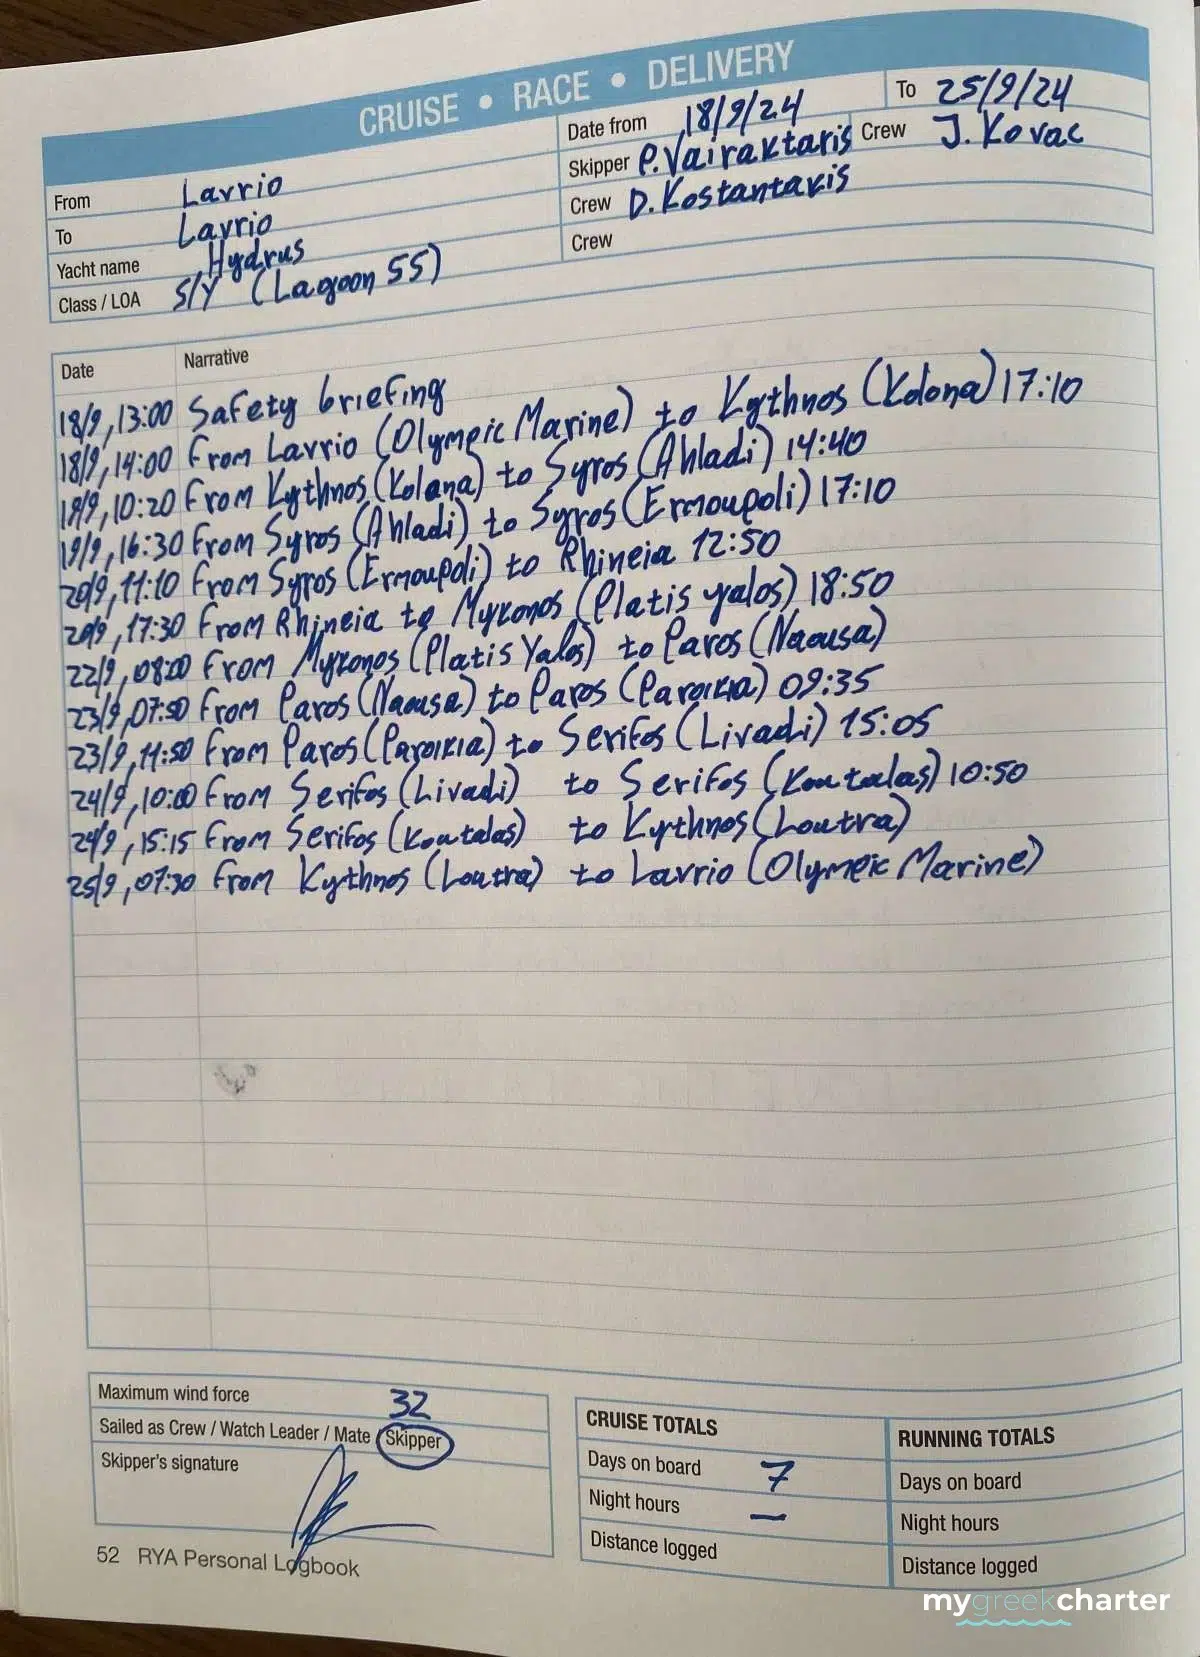 CRUISE • RACE • DELIVERY
From Lavrio
To Lavrio
Yacht name Hydrus
Class / LOA S/Y (Lagoon 55)
Date from 18/9/24 To 25/9/24
Skipper P.Vairaktaris Crew J. Kovac
Crew D. Kostantakis
Crew
Date Narrative
18/9, 13:00 Safety briefing
18/9, 14:00 From Lavrio (Olympic Marine) to Kythnos (Kolona) 17:10
19/9, 10:20 From Kythnos (Kolona) to Syros (Ahladi) 14:40
19/9, 16:30 From Syros (Ahladi) to Syros (Ermoupoli) 17:10
20/9, 11:10 From Syros (Ermoupoli) to Rhineia 12:50
20/9, 17:30 From Rhineia to Mykonos (Platis yalos) 18:50
22/9, 08:00 From Mykonos (Platis Yalos) to Paros (Naousa)
23/9, 07:50 From Paros (Naousa) to Paros (Paroikia) 09:35
23/9, 11:50 From Paros (Paroikia) to Serifos (Livadi) 15:05
24/9, 10:00 From Serifos (Livadi) to Serifos (Koutalas) 10:50
24/9, 15:15 From Serifos (Koutalas) to Kythnos (Loutra)
25/9, 07:30 From Kythnos (Loutra) to Lavrio (Olympic Marine)
Maximum wind force 32
Sailed as Crew / Watch Leader / Mate / Skipper
Skipper's signature
CRUISE TOTALS
Days on board 7
Night hours —
Distance logged
RUNNING TOTALS
Days on board
Night hours
Distance logged
52 RYA Personal Logbook
mygreekcharter